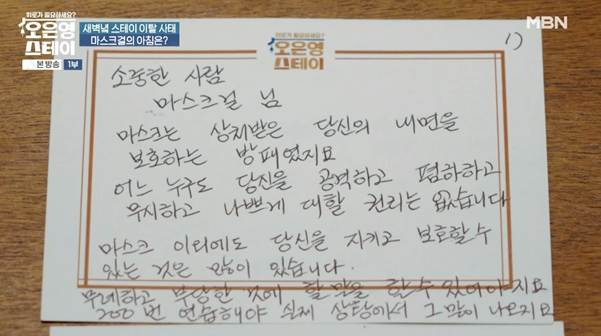 위로가 필요하세요?
오은영
스테이
본 방송 1부
새벽녘 스테이 이탈 사태
마스크걸의 아침은?
MBN
위로가 필요하세요?
오은영
스테이
1)
소중한 사람
마스크걸 님
마스크는 상처받은 당신의 내면을
보호하는 방패였지요
어느 누구도 당신을 공격하고 폄하하고
무시하고 나쁘게 대할 권리는 없습니다
마스크 이외에도 당신을 지키고 보호할 수
있는 것은 많이 있습니다.
무례하고 부당한 것에 할 말을 할 수 있어야지요
200번 연습해야 실제 상황에서 그 말이 나오지요